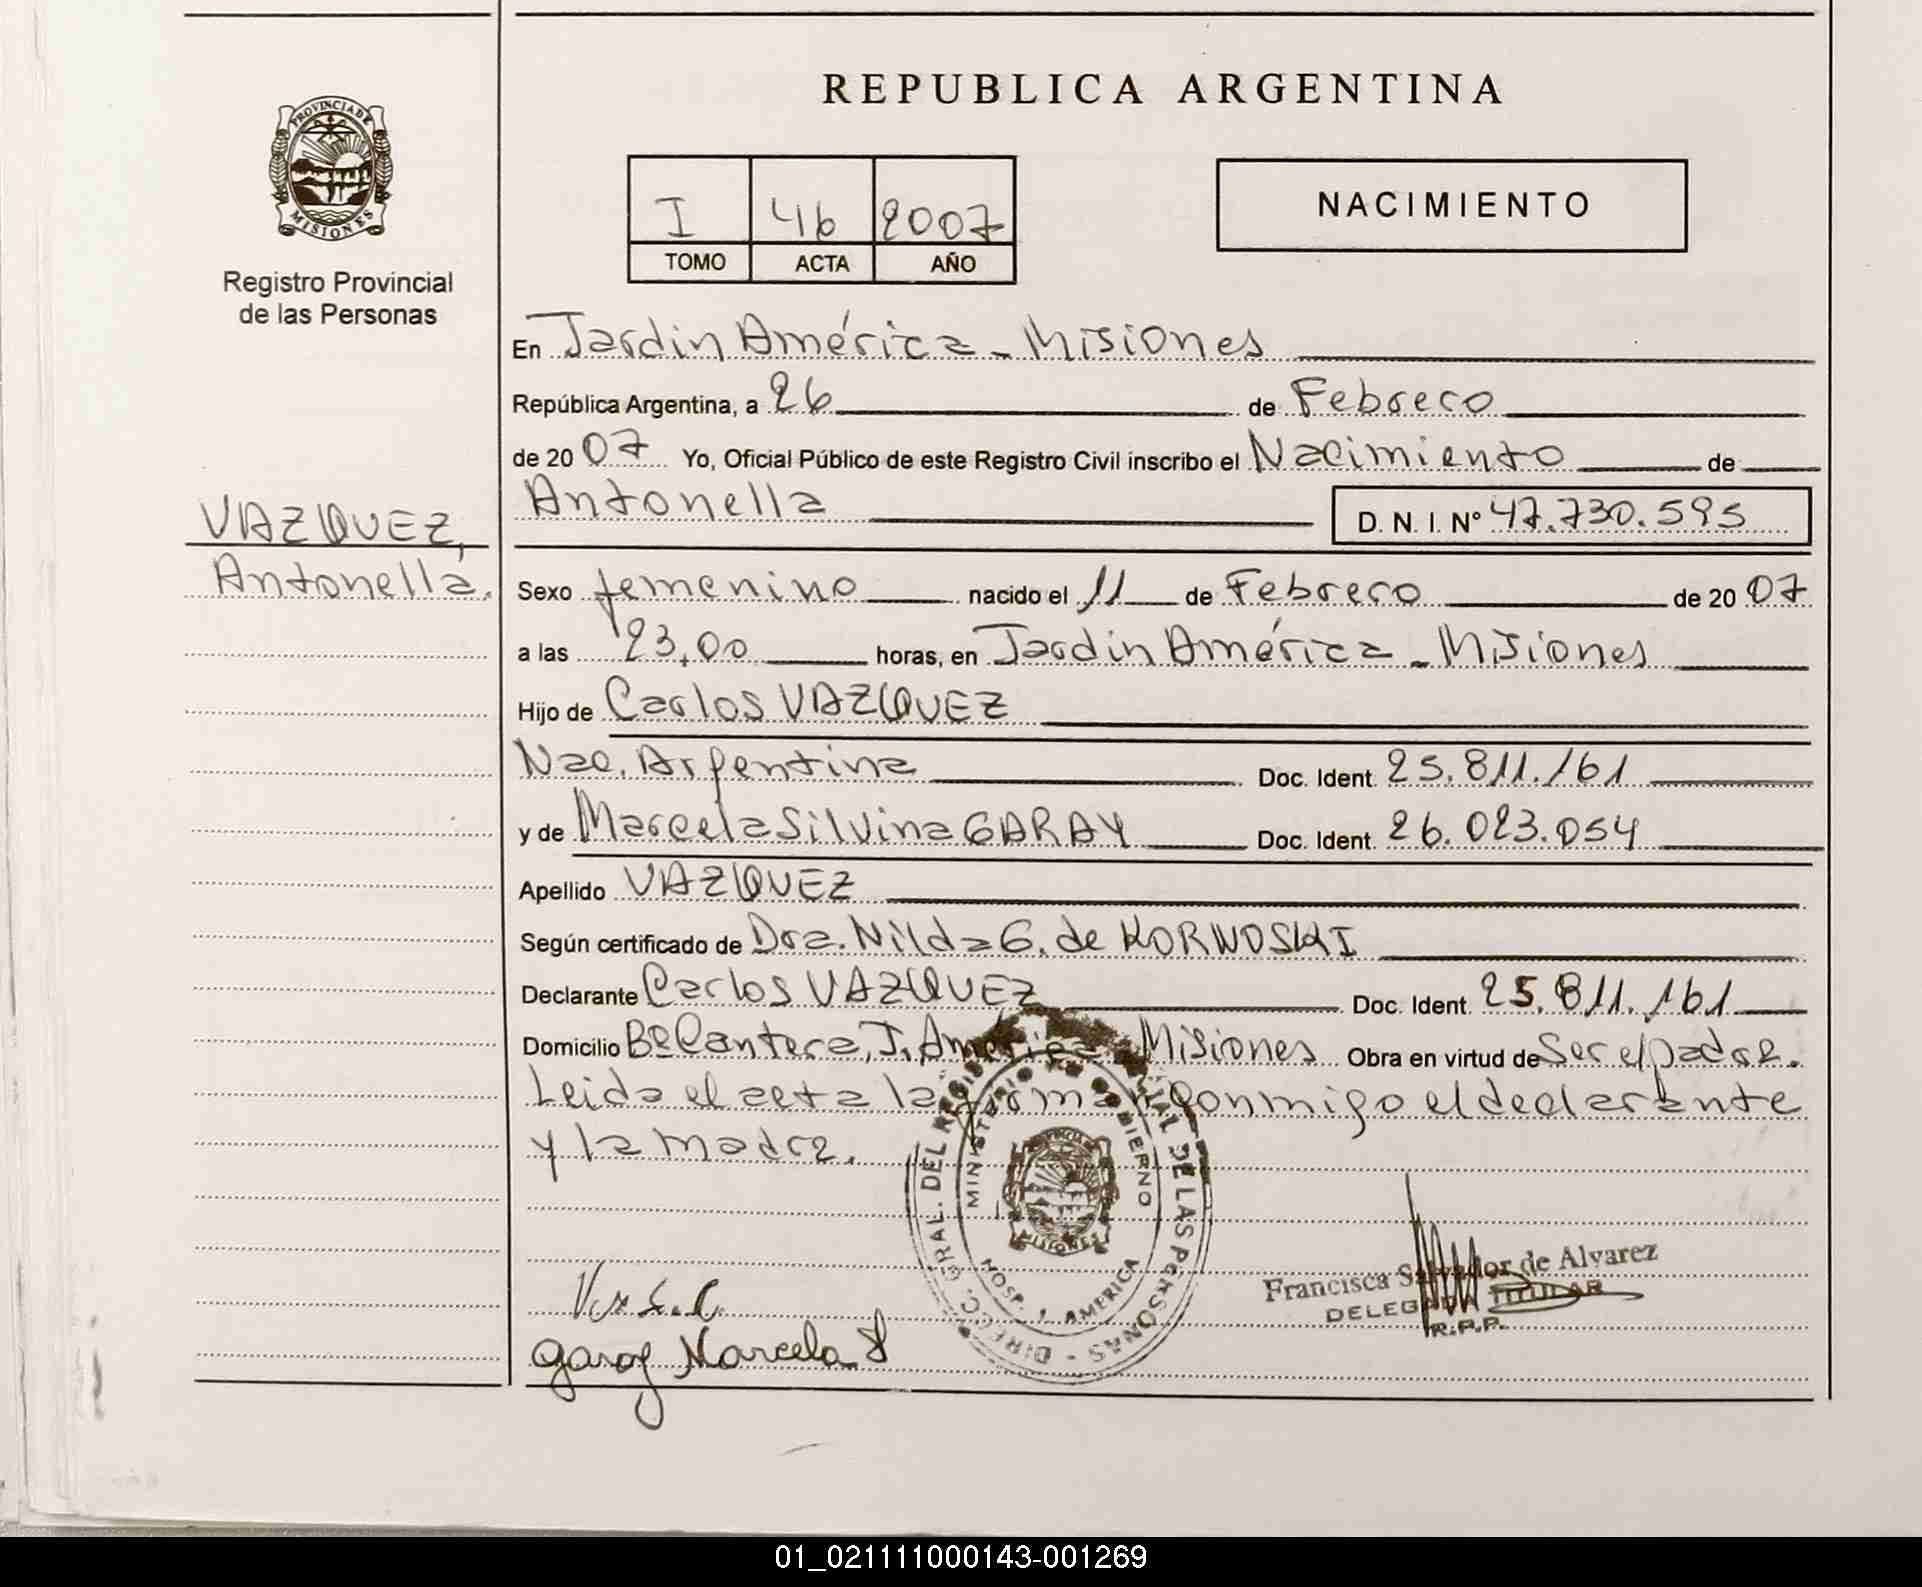 REPUBLICA ARGENTINA
PROVINCIA DE
MISIONES
Registro Provincial
de las Personas
I 46 2007
TOMO ACTA AÑO
NACIMIENTO
En Jardin América - Misiones
República Argentina, a 26 de Febrero
de 20 07 Yo, Oficial Público de este Registro Civil inscribo el Nacimiento de
Antonella D. N. I. Nº 47.730.595
VAZQUEZ,
Antonella.
Sexo femenino nacido el 11 de Febrero de 20 07
a las 23,00 horas, en Jardin América - Misiones
Hijo de Carlos VAZQUEZ
Nac. Argentina Doc. Ident. 25.811.161
y de Marcela Silvina GARAY Doc. Ident. 26.023.054
Apellido VAZQUEZ
Según certificado de Dra. Nilda G. de KORNOSKI
Declarante Carlos VAZQUEZ Doc. Ident. 25.811.161
Domicilio Bº Cantera, J. América Misiones Obra en virtud de Ser el padre.
Leida el acta la firman conmigo el declarante
y la madre.
DIREC. GRAL. DEL REGISTRO PROVINCIAL DE LAS PERSONAS
MINISTERIO DE GOBIERNO
MISIONES
HOSP. J. AMERICA
Francisca Salvador de Alvarez
DELEGADA TITULAR
R.P.P.
Garay Marcela S
01_021111000143-001269